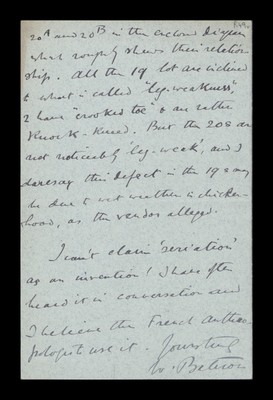 20A and 20B in the enclosed diagram
what roughly shews their relation-
ship. All the 19 lot are inclined
to what is called "leg-weakness",
2 have "crooked toe" & are rather
Knock-Kneed. But the 20s are
not noticeably 'leg-weak', and I
daresay this defect in the 19s may
be due to wet weather in chicken-
hood, as the vendor alleged.
I can't claim 'seriation'
as an invention! I have often
heard it in conversation and
I believe the French anthro-
pologists use it. Yours truly
W. Bateson